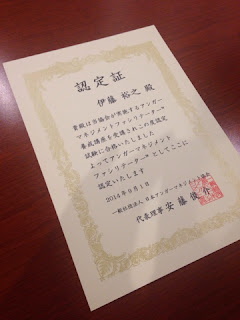 認定証
伊藤 裕之 殿
貴殿は当協会が実施するアンガー
マネジメントファシリテーター®
養成講座を受講されこの度認定
試験に合格いたしました
よってアンガーマネジメント
ファシリテーター®としてここに
認定いたします
2014年9月1日
一般社団法人 日本アンガーマネジメント協会
代表理事 安藤 俊介